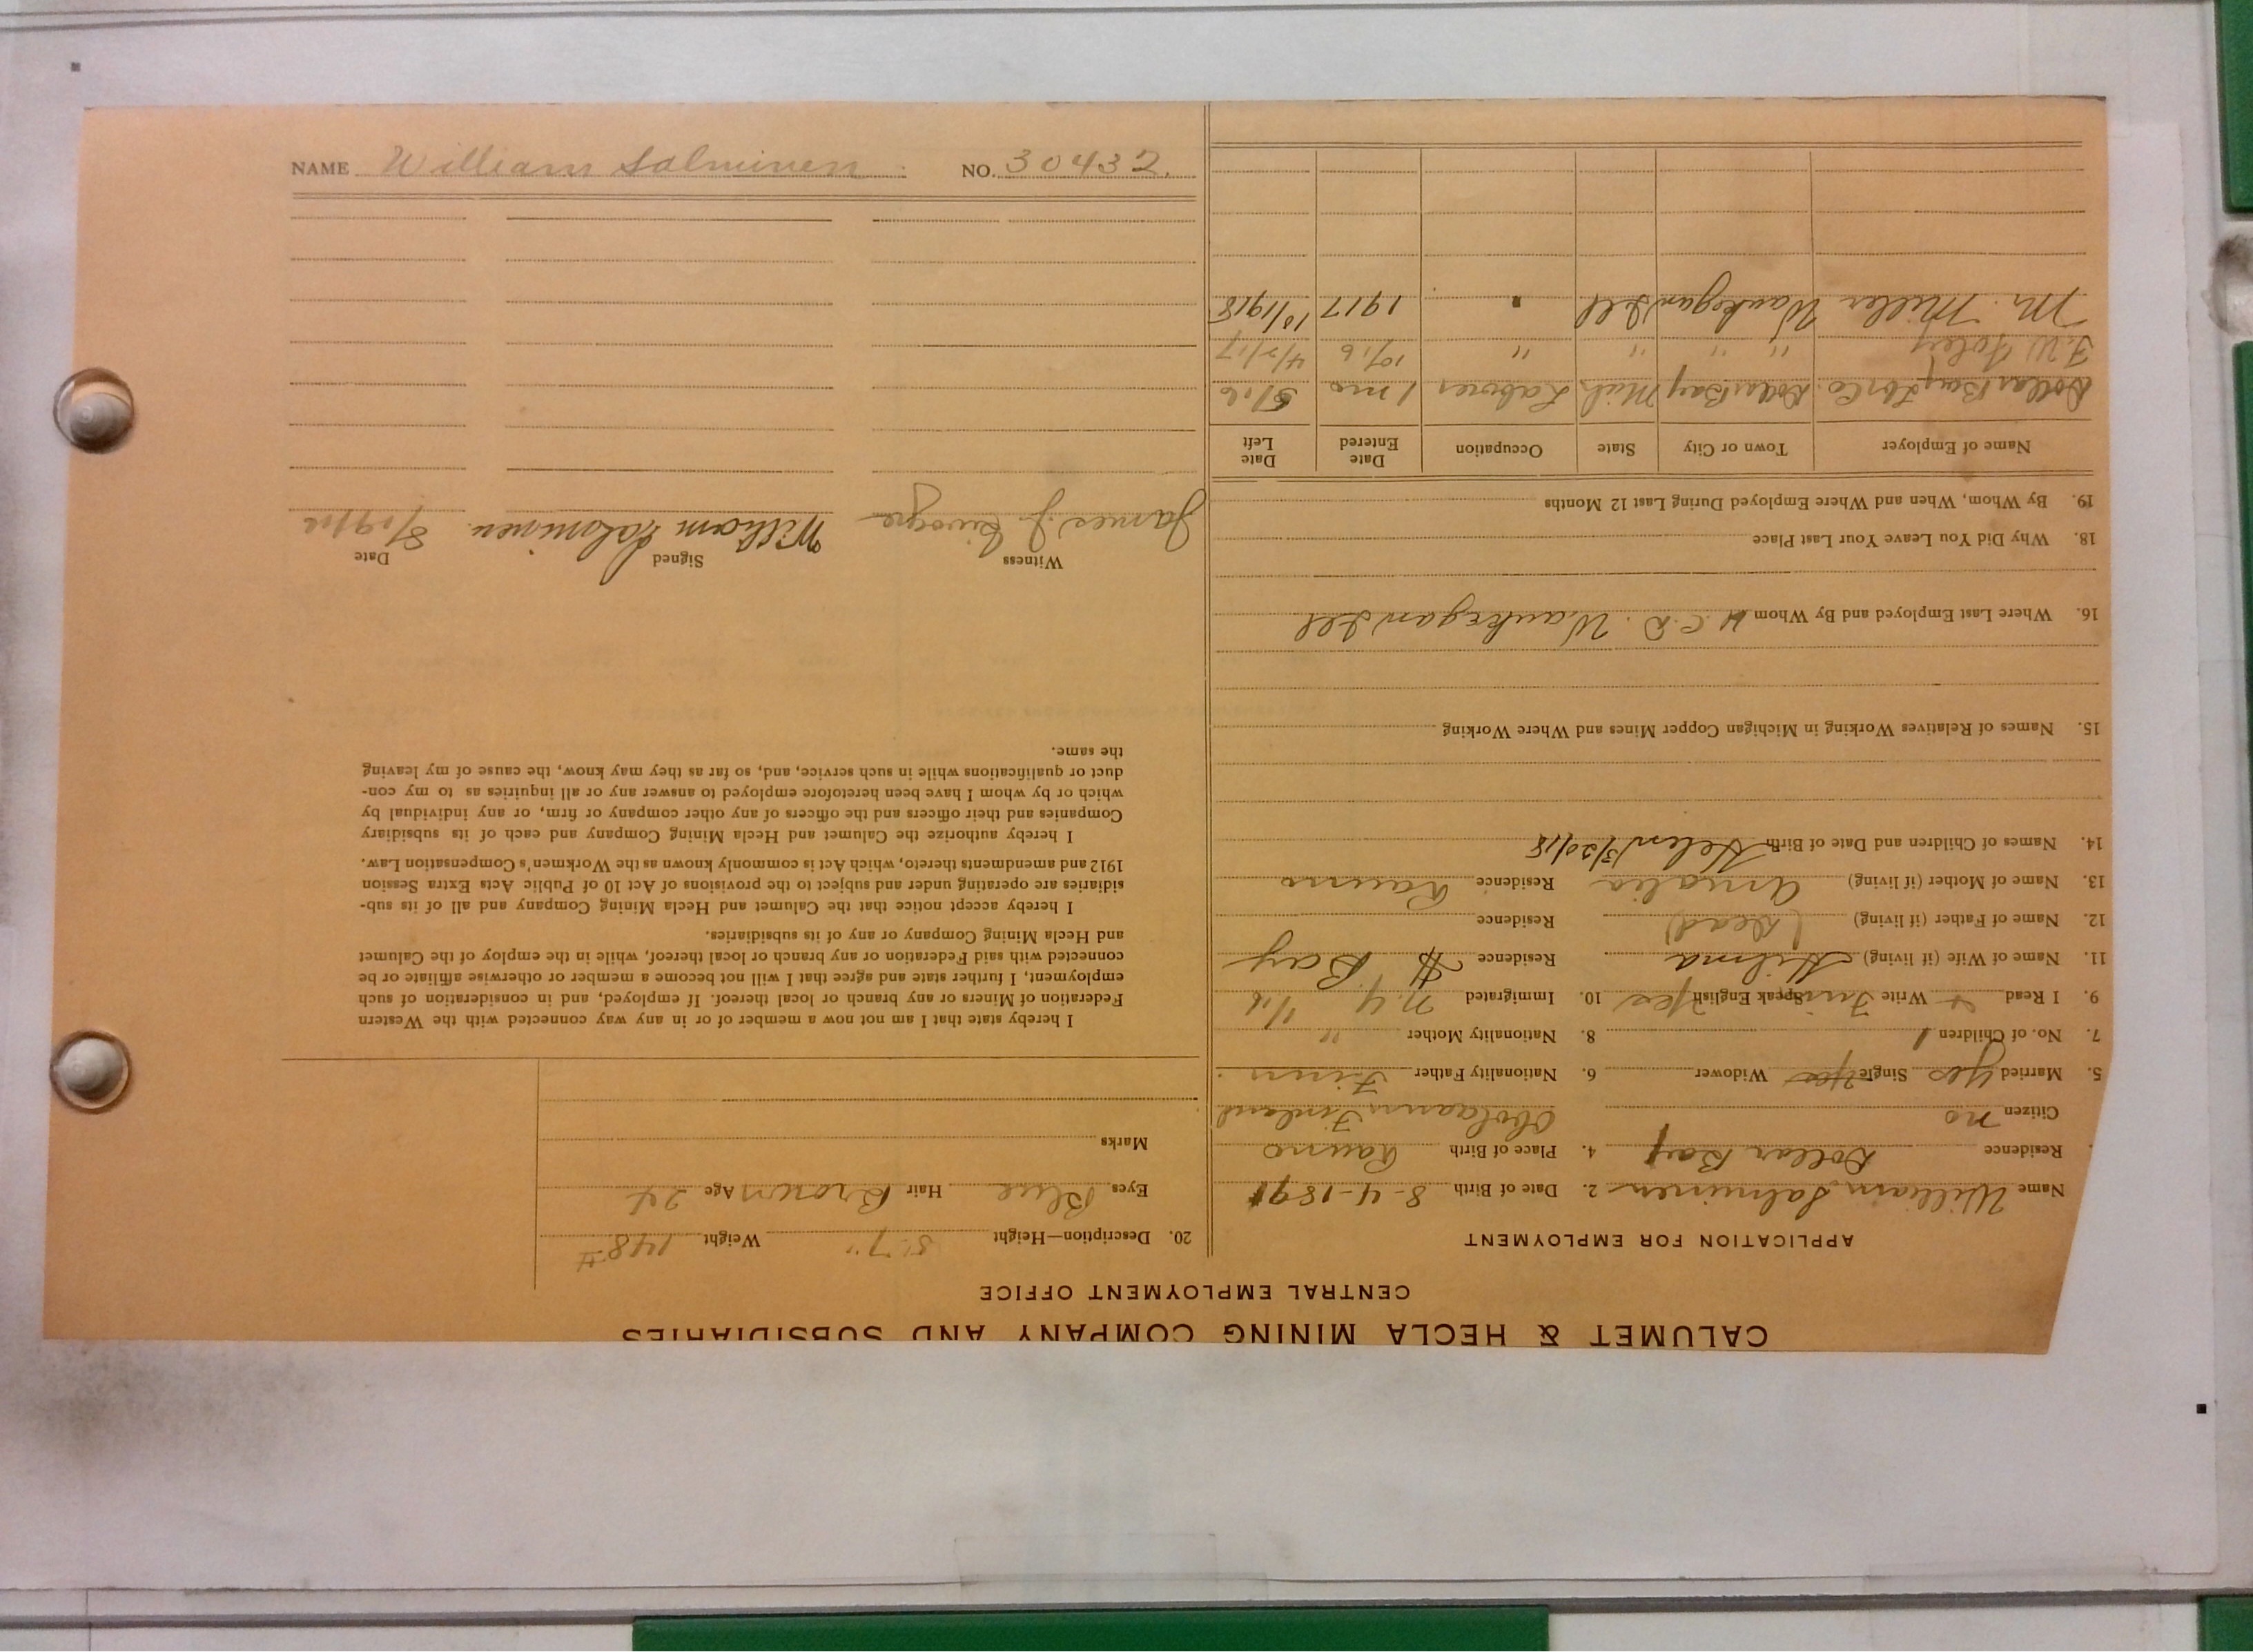 CALUMET & HECLA MINING COMPANY AND SUBSIDIARIES
CENTRAL EMPLOYMENT OFFICE
APPLICATION FOR EMPLOYMENT
Name William Salminen 2. Date of Birth 8-4-1891
Residence Dollar Bay 4. Place of Birth Raumo
Citizen no Finland
5. Married yes Single yes Widower 6. Nationality Father Finn
7. No. of Children 1 8. Nationality Mother "
9. I Read Write Finn Speak English yes 10. Immigrated N.Y. 1/16
11. Name of Wife (if living) Hilma Residence D. Bay
12. Name of Father (if living) (Dead) Residence
13. Name of Mother (if living) Amalia Residence Raumo
14. Names of Children and Date of Birth Helen 3/20/18
15. Names of Relatives Working in Michigan Copper Mines and Where Working
16. Where Last Employed and By Whom Waukegan Ill
18. Why Did You Leave Your Last Place
19. By Whom, When and Where Employed During Last 12 Months
Name of Employer Town or City State Occupation Date Entered Date Left
Dollar Bay Dollar Bay Mich Laborer 1 mo 8/16
F.W. Foley " " " " 10/16 4/2/17
Mr. Miller Waukegan Ill " 1917 10/1918
20. Description—Height 5' 7" Weight 148#
Eyes Blue Hair Brown Age 24
Marks
I hereby state that I am not now a member of or in any way connected with the Western
Federation of Miners or any branch or local thereof. If employed, and in consideration of such
employment, I further state and agree that I will not become a member or otherwise affiliate or be
connected with said Federation or any branch or local thereof, while in the employ of the Calumet
and Hecla Mining Company or any of its subsidiaries.
I hereby accept notice that the Calumet and Hecla Mining Company and all of its sub-
sidiaries are operating under and subject to the provisions of Act 10 of Public Acts Extra Session
1912 and amendments thereto, which Act is commonly known as the Workmen's Compensation Law.
I hereby authorize the Calumet and Hecla Mining Company and each of its subsidiary
Companies and their officers and the officers of any other company or firm, or any individual by
which or by whom I have been heretofore employed to answer any or all inquiries as to my con-
duct or qualifications while in such service, and, so far as they may know, the cause of my leaving
the same.
Witness Signed Date
James J. William Salminen 8/19/16
NAME William Salminen NO. 30432.